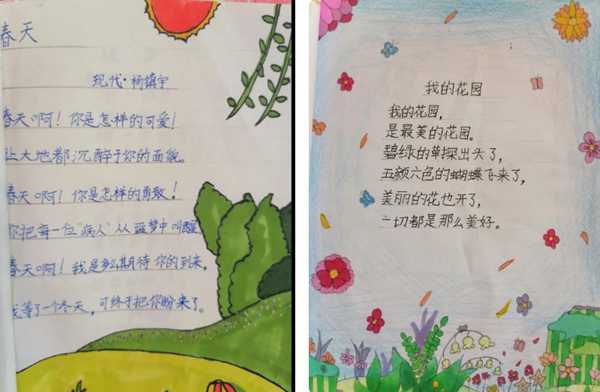 春天
现代·杨镇宁
春天啊！你是怎样的可爱！
让大地都沉醉于你的面貌。
春天啊！你是怎样的勇敢！
你把每一位“病人”从噩梦中叫醒
春天啊！我是多么期待你的到来。
我等了一个冬天，可终于把你盼来了。
我的花园
我的花园，
是最美的花园。
碧绿的草探出头了，
五颜六色的蝴蝶飞来了，
美丽的花也开了，
一切都是那么美好。